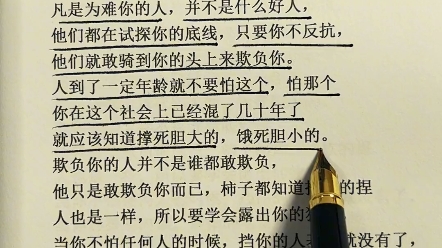 凡是为难你的人，并不是什么好人，
他们都在试探你的底线，只要你不反抗，
他们就敢骑到你的头上来欺负你。
人到了一定年龄就不要怕这个，怕那个
你在这个社会上已经混了几十年了
就应该知道撑死胆大的，饿死胆小的。
欺负你的人并不是谁都敢欺负，
他只是敢欺负你而已，柿子都知道 的捏
人也是一样，所以要学会露出你的
当你不怕任何人的时候，挡你的人 就没有了，